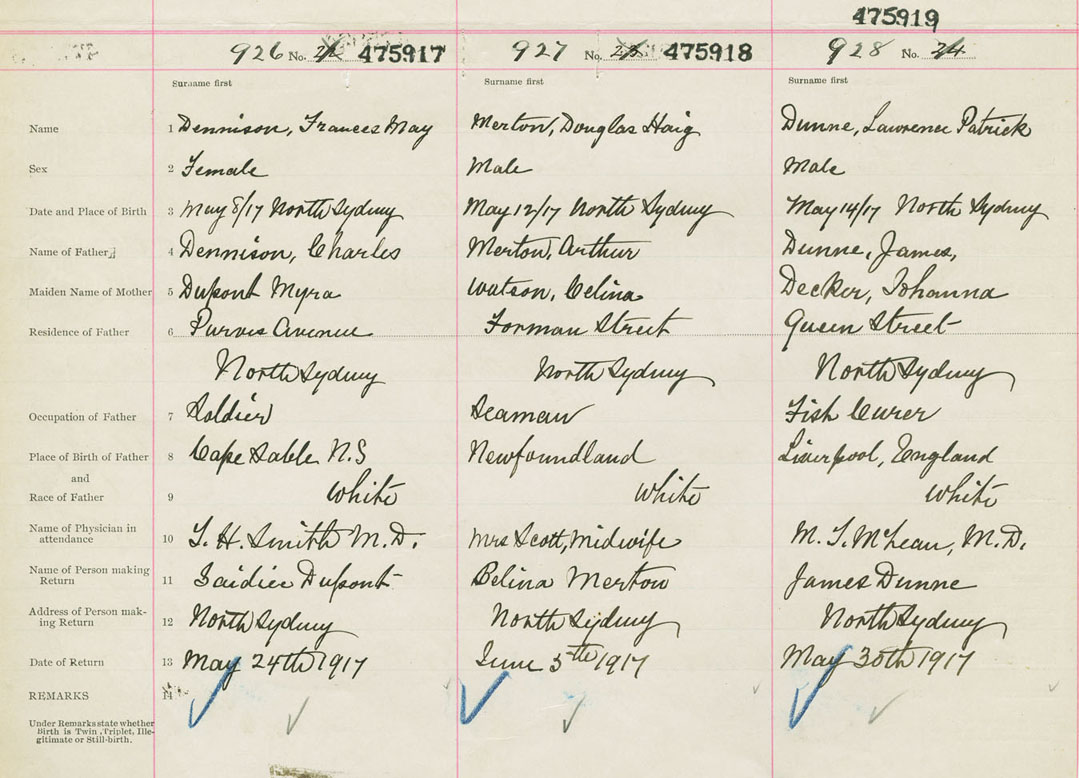 475919
926 No. 22 475917 927 No. 23 475918 928 No. 24
Surname first Surname first Surname first
Name 1 Dennison, Frances May Merton, Douglas Haig Dunne, Lawrence Patrick
Sex 2 Female Male Male
Date and Place of Birth 3 May 8/17 North Sydney May 12/17 North Sydney May 14/17 North Sydney
Name of Father 4 Dennison, Charles Merton, Arthur Dunne, James,
Maiden Name of Mother 5 Dupont Myra Watson, Celina Decker, Johanna
Residence of Father 6 Purves Avenue Forman Street Queen Street
North Sydney North Sydney North Sydney
Occupation of Father 7 Soldier Seaman Fish Curer
Place of Birth of Father 8 Cape Sable N.S Newfoundland Liverpool, England
and
Race of Father 9 White White White
Name of Physician in
attendance 10 T. H. Smith M.D. Mrs Scott, Midwife M. T. McLean, M.D.
Name of Person making
Return 11 Saidier Dupont Belina Merton James Dunne
Address of Person mak-
ing Return 12 North Sydney North Sydney North Sydney
Date of Return 13 May 24th 1917 June 5th 1917 May 30th 1917
REMARKS 14
Under Remarks state whether
Birth is Twin, Triplet, Ille-
gitimate or Still-birth.